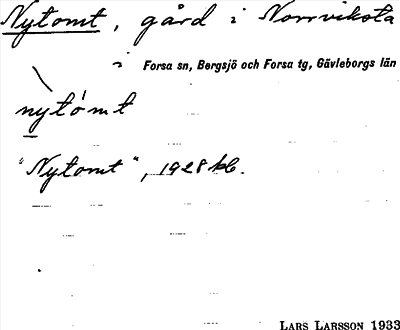 Nytomt, gård i Norrviksta
i Forsa sn, Bergsjö och Forsa tg, Gävleborgs län
nỳtómt
"Nytomt", 1928 kb.
LARS LARSSON 1933